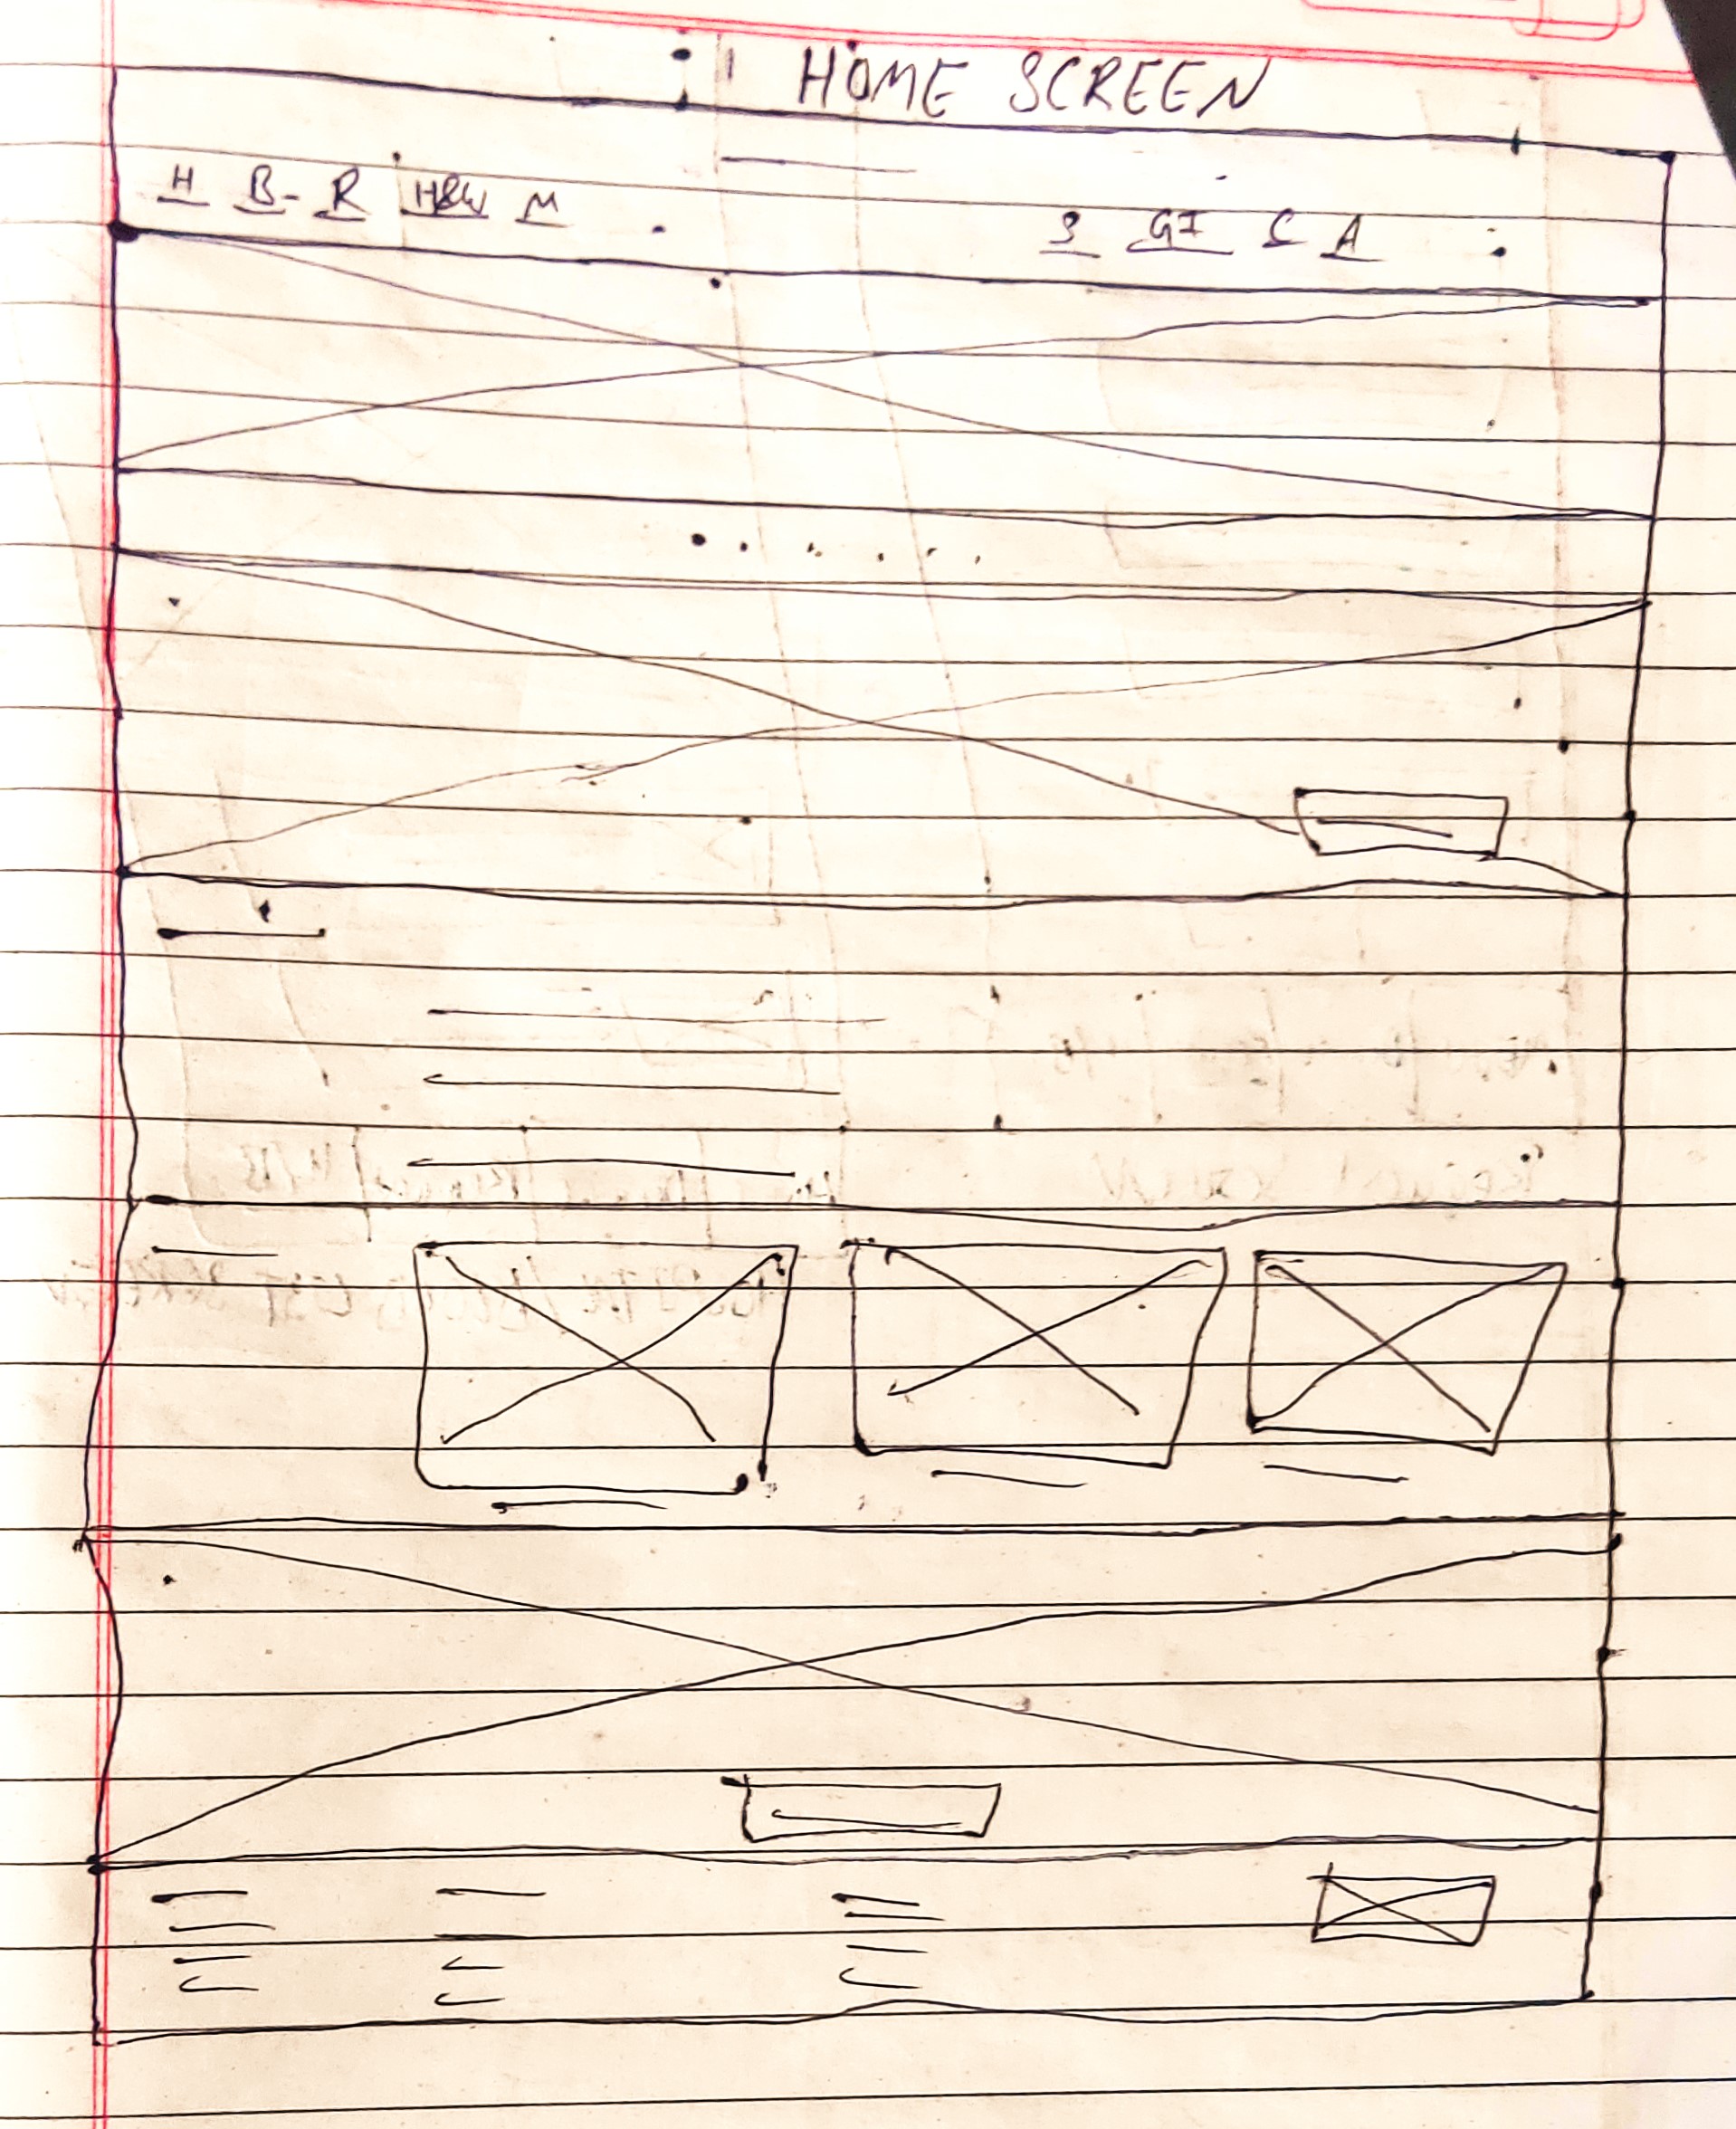 HOME SCREEN
H B- R H&W M
S GI C A